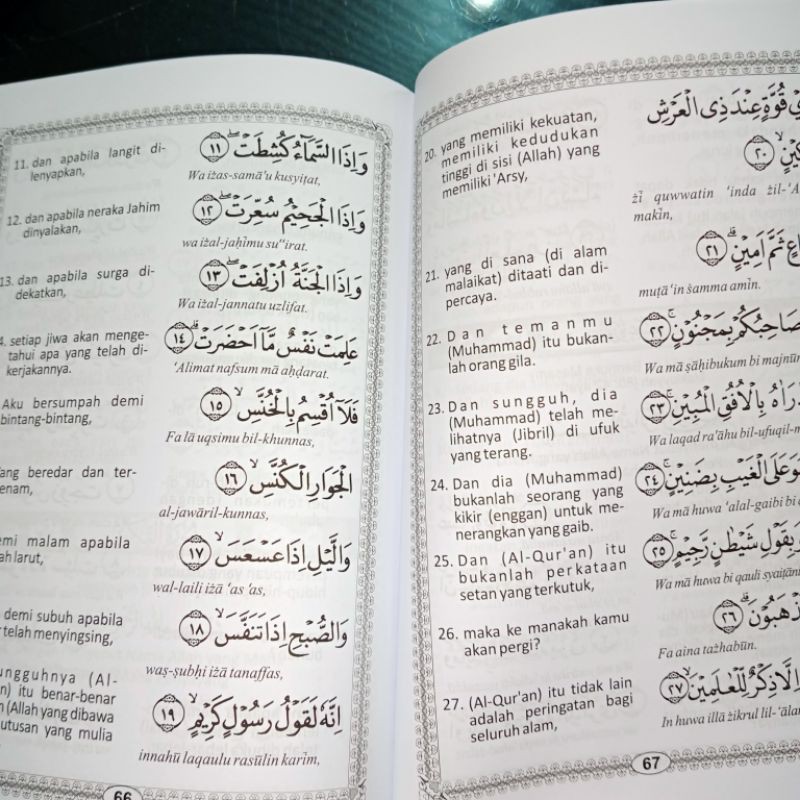 11. dan apabila langit di-
lenyapkan,
وَاِذَا السَّمَاۤءُ كُشِطَتْۖ ١١
Wa iżas-samā'u kusyiṭat,
12. dan apabila neraka Jahim
dinyalakan,
وَاِذَا الْجَحِيْمُ سُعِّرَتْۖ ١٢
wa iżal-jaḥīmu su''irat.
13. dan apabila surga di-
dekatkan,
وَاِذَا الْجَنَّةُ اُزْلِفَتْۖ ١٣
Wa iżal-jannatu uzlifat.
4. setiap jiwa akan menge-
tahui apa yang telah di-
kerjakannya.
عَلِمَتْ نَفْسٌ مَّآ اَحْضَرَتْۗ ١٤
'Alimat nafsum mā aḥḍarat.
Aku bersumpah demi
bintang-bintang,
فَلَآ اُقْسِمُ بِالْخُنَّسِۙ ١٥
Fa lā uqsimu bil-khunnas,
beredar dan ter-
enam,
الْجَوَارِ الْكُنَّسِۙ ١٦
al-jawāril-kunnas,
malam apabila
larut,
وَالَّيْلِ اِذَا عَسْعَسَۙ ١٧
wal-laili iżā 'as 'as,
demi subuh apabila
telah menyingsing,
وَالصُّبْحِ اِذَا تَنَفَّسَۙ ١٨
waṣ-ṣubḥi iżā tanaffas,
ungguhnya (Al-
itu benar-benar
(Allah yang dibawa
utusan yang mulia
اِنَّهٗ لَقَوْلُ رَسُوْلٍ كَرِيْمٍۙ ١٩
innahū laqaulu rasūlin karīm,
66
20. yang memiliki kekuatan,
memiliki kedudukan
tinggi di sisi (Allah) yang
memiliki 'Arsy,
قُوَّةٍ عِنْدَ ذِى الْعَرْشِ
٢٠
żī quwwatin 'inda żil-'A
makīn,
21. yang di sana (di alam
malaikat) ditaati dan di-
percaya.
ثَمَّ اَمِيْنٍۗ ٢١
muṭā 'in ṡamma amīn.
22. Dan temanmu
(Muhammad) itu bukan-
lah orang gila.
صَاحِبُكُمْ بِمَجْنُوْنٍۚ ٢٢
Wa mā ṣāḥibukum bi majnūn
23. Dan sungguh, dia
(Muhammad) telah me-
lihatnya (Jibril) di ufuk
yang terang.
بِالْاُفُقِ الْمُبِيْنِۚ ٢٣
Wa laqad ra'āhu bil-ufuqil-m
24. Dan dia (Muhammad)
bukanlah seorang yang
kikir (enggan) untuk me-
nerangkan yang gaib.
عَلَى الْغَيْبِ بِضَنِيْنٍۚ ٢٤
Wa mā huwa 'alal-gaibi bi
25. Dan (Al-Qur'an) itu
bukanlah perkataan
setan yang terkutuk,
بِقَوْلِ شَيْطٰنٍ رَّجِيْمٍۚ ٢٥
Wa mā huwa bi qauli syaiṭānu
26. maka ke manakah kamu
akan pergi?
٢٦
Fa aina tażhabūn.
27. (Al-Qur'an) itu tidak lain
adalah peringatan bagi
seluruh alam,
اِلَّا ذِكْرٌ لِّلْعٰلَمِيْنَۙ ٢٧
In huwa illā żikrul lil-'ālam
67